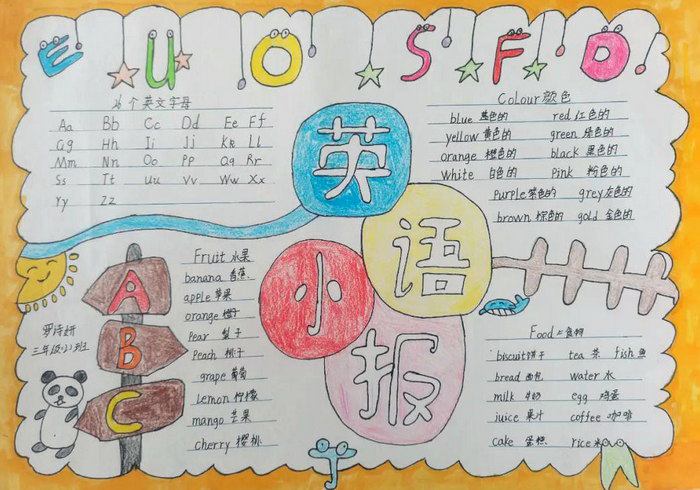 E U O S F D
26个英文字母
Aa Bb Cc Dd Ee Ff
Gg Hh Ii Jj Kk Ll
Mm Nn Oo Pp Qq Rr
Ss Tt Uu Vv Ww Xx
Yy Zz
Colour 颜色
blue 蓝色的 red 红色的
yellow 黄色的 green 绿色的
orange 橙色的 black 黑色的
white 白色的 Pink 粉色的
Purple 紫色的 grey 灰色的
brown 棕色的 gold 金色的
英
语
小
报
A
B
C
三年级
Fruit 水果
banana 香蕉
apple 苹果
orange 橙子
Pear 梨子
Peach 桃子
grape 葡萄
Lemon 柠檬
mango 芒果
cherry 樱桃
Food 食物
biscuit 饼干 tea 茶 fish 鱼
bread 面包 water 水
milk 牛奶 egg 鸡蛋
juice 果汁 coffee 咖啡
cake 蛋糕 rice 米